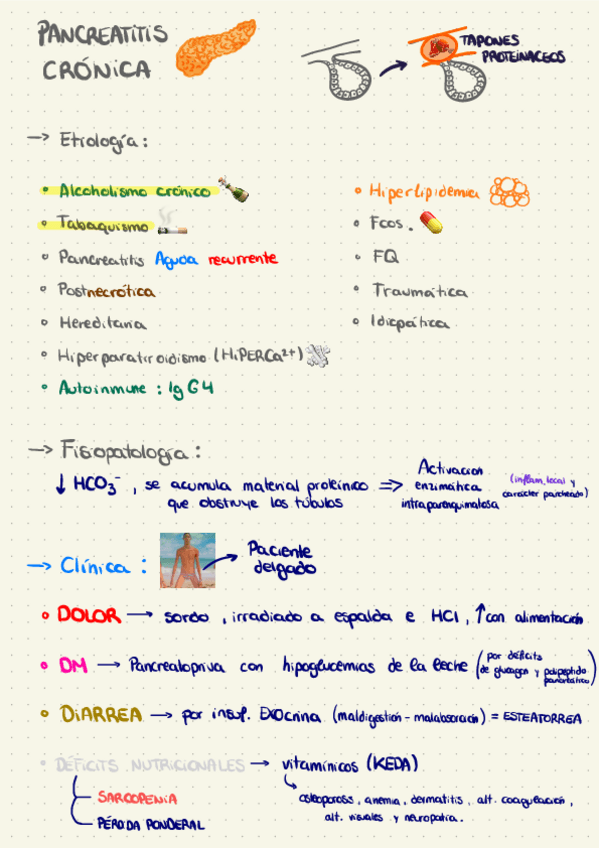 PANCREATITIS
CRÓNICA
TAPONES
PROTEINACEOS
→ Etiología:
• Alcoholismo crónico
• Tabaquismo
• Pancreatitis Aguda recurrente
• Postnecrótica
• Hereditaria
• Hiperparatiroidismo (HiPERCa²⁺)
• Autoinmune: Ig G4
• Hiperlipidemia
• Fcos.
• FQ
• Traumática
• Idiopática
→ Fisiopatología:
↓ HCO₃⁻, se acumula material proteínico
que obstruye los túbulos
⇒ Activación
enzimática
intraparenquimatosa
(inflam. local y
carácter parcheado)
→ Clínica:
Paciente
delgado
• DOLOR → sordo, irradiado a espalda e HCI, ↑ con alimentación
• DM → Pancreatopriva con hipoglucemias de la leche (por déficits
de glucagon y polipéptido
pancreático)
• DiARREA → por insuf. Exocrina (maldigestión - malabsorción) = ESTEATORREA
• DÉFICITS NUTRICIONALES → vitamínicos (KEDA)
SARCOPENIA
PÉRDIDA PONDERAL
osteoporosis, anemia, dermatitis, alt. coagulación,
alt. visuales y neuropatía.